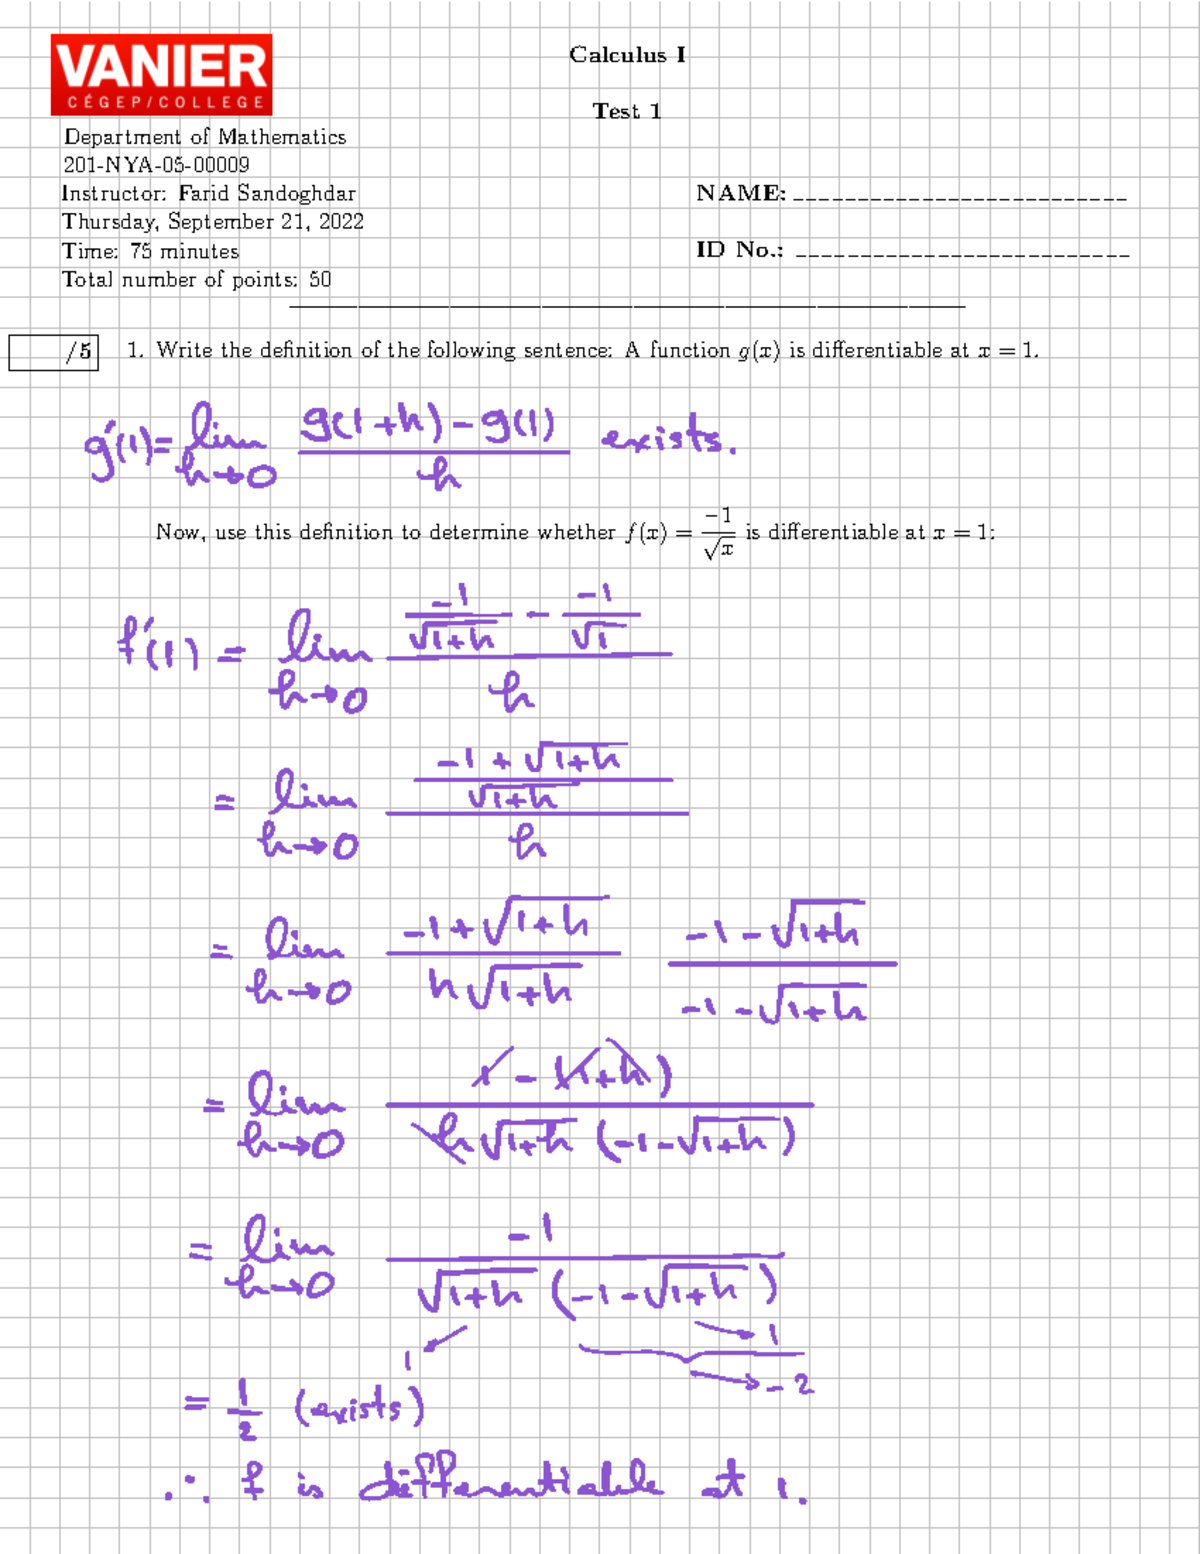 VANIER
CÉGEP/COLLEGE
Calculus I
Test 1
Department of Mathematics
201-NYA-05-00009
Instructor: Farid Sandoghdar
NAME: _________________________
Thursday, September 21, 2022
Time: 75 minutes
ID No.: _________________________
Total number of points: 50
/5 1. Write the definition of the following sentence: A function g(x) is differentiable at x = 1.
g'(1) = lim h→0 (g(1+h) - g(1))/h exists.
Now, use this definition to determine whether f(x) = -1/√x is differentiable at x = 1:
f'(1) = lim h→0 (-1/√(1+h) - -1/√1)/h
= lim h→0 ((-1+√(1+h))/√(1+h))/h
= lim h→0 (-1+√(1+h))/(h√(1+h)) (-1-√(1+h))/(-1-√(1+h))
= lim h→0 (1-(1+h))/(h√(1+h)(-1-√(1+h)))
= lim h→0 -1/(√(1+h)(-1-√(1+h)))
→1
1
→-2
= 1/2 (exists)
∴ f is differentiable at 1.